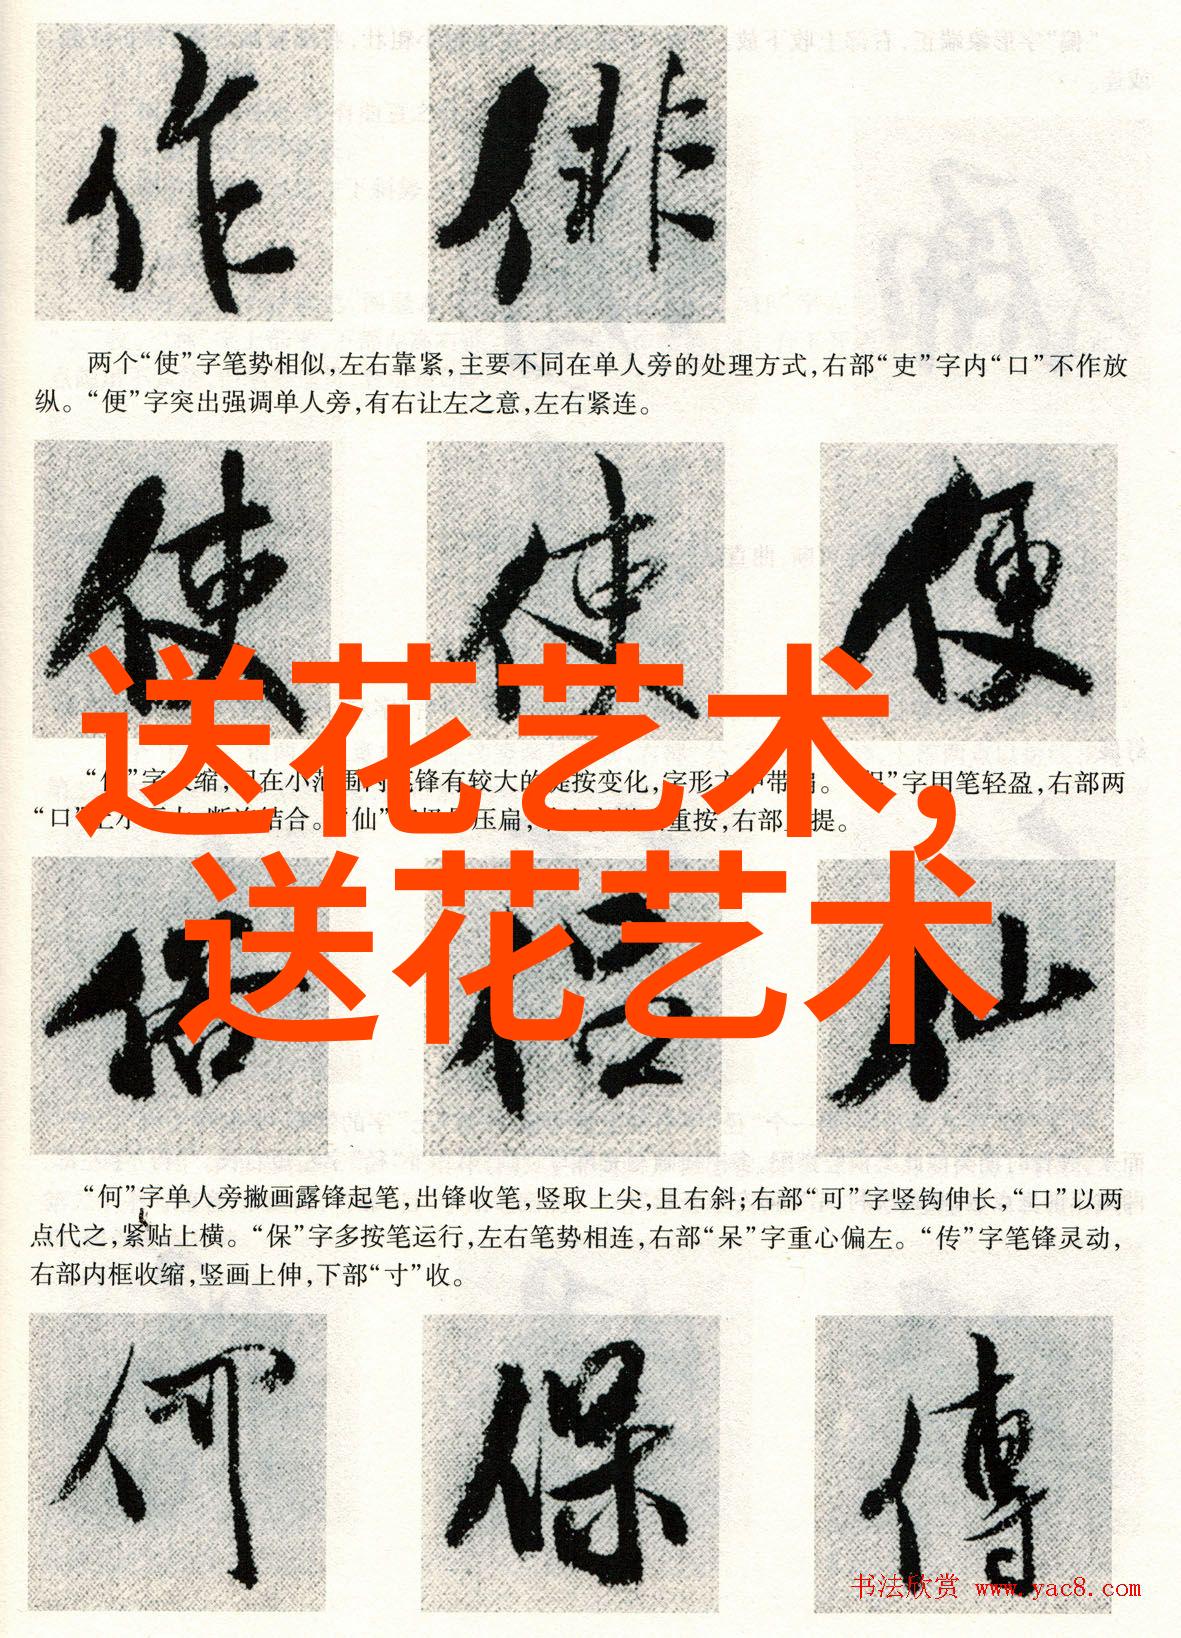 作 俳
两个“使”字笔势相似，左右靠紧，主要不同在单人旁的处理方式，右部“吏”字内“口”不作放
纵。“便”字突出强调单人旁，有右让左之意，左右紧连。
使 使 便
送花艺术，
字用笔轻盈，右部两
“口”
压扁，
重按，右部
提。
送花艺术
侣 仙
“何”字单人旁撇画露锋起笔，出锋收笔，竖取上尖，且右斜；右部“可”字竖钩伸长，“口”以两
点代之，紧贴上横。“保”字多按笔运行，左右笔势相连，右部“呆”字重心偏左。“传”字笔锋灵动，
右部内框收缩，竖画上伸，下部“寸”收。
何 保 傳
书法欣赏 www.yac8.com